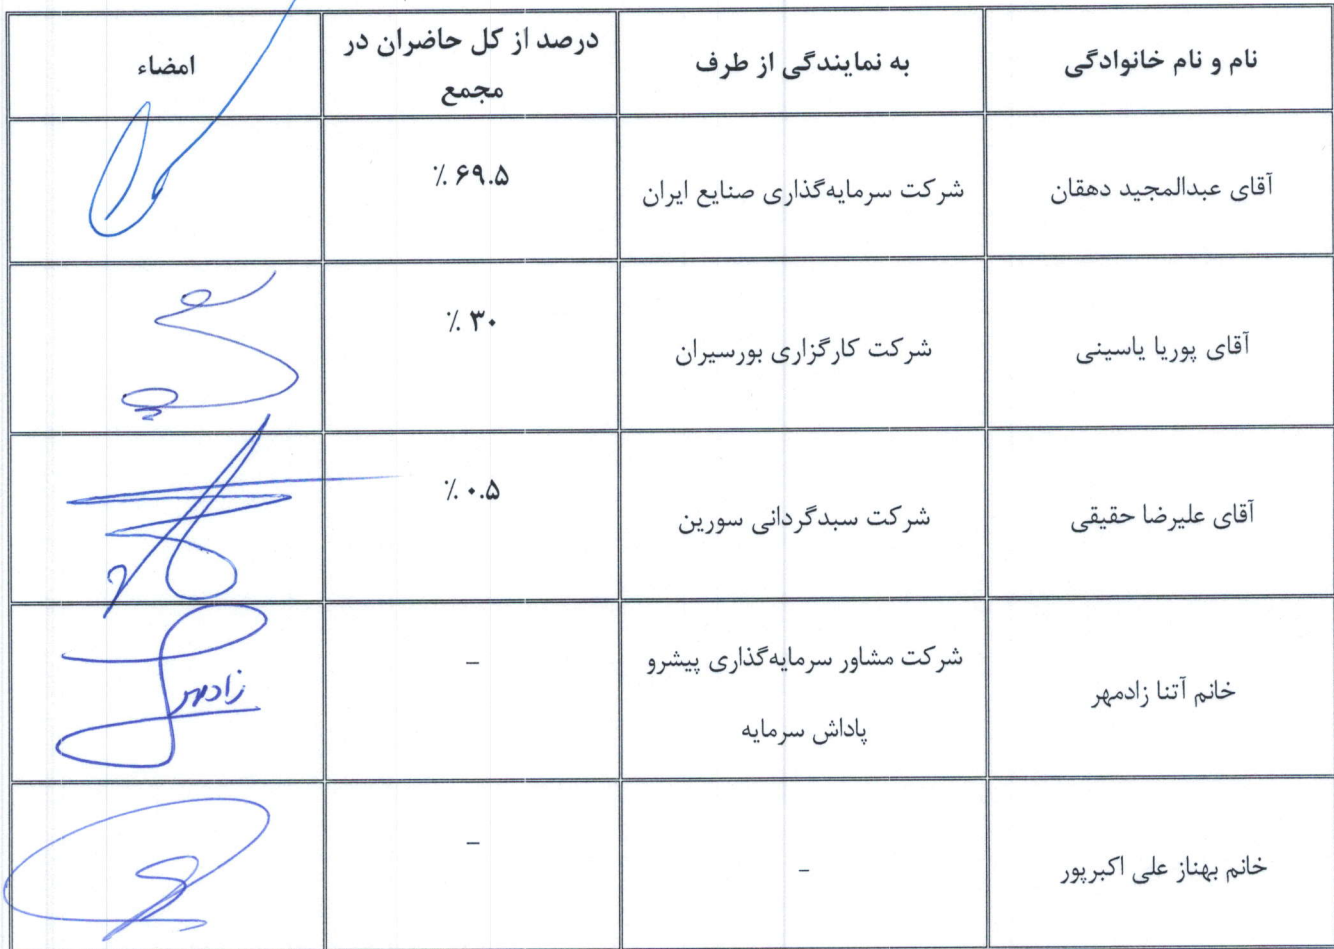 نام و نام خانوادگی
به نمایندگی از طرف
درصد از کل حاضران در
مجمع
امضاء
آقای عبدالمجید دهقان
شرکت سرمایه‌گذاری صنایع ایران
٪ ۶۹.۵
آقای پوریا یاسینی
شرکت کارگزاری بورسیران
٪ ۳۰
آقای علیرضا حقیقی
شرکت سبدگردانی سورین
٪ ۰.۵
خانم آتنا زادمهر
شرکت مشاور سرمایه‌گذاری پیشرو
پاداش سرمایه
–
زادمهر
خانم بهناز علی اکبرپور
–
–